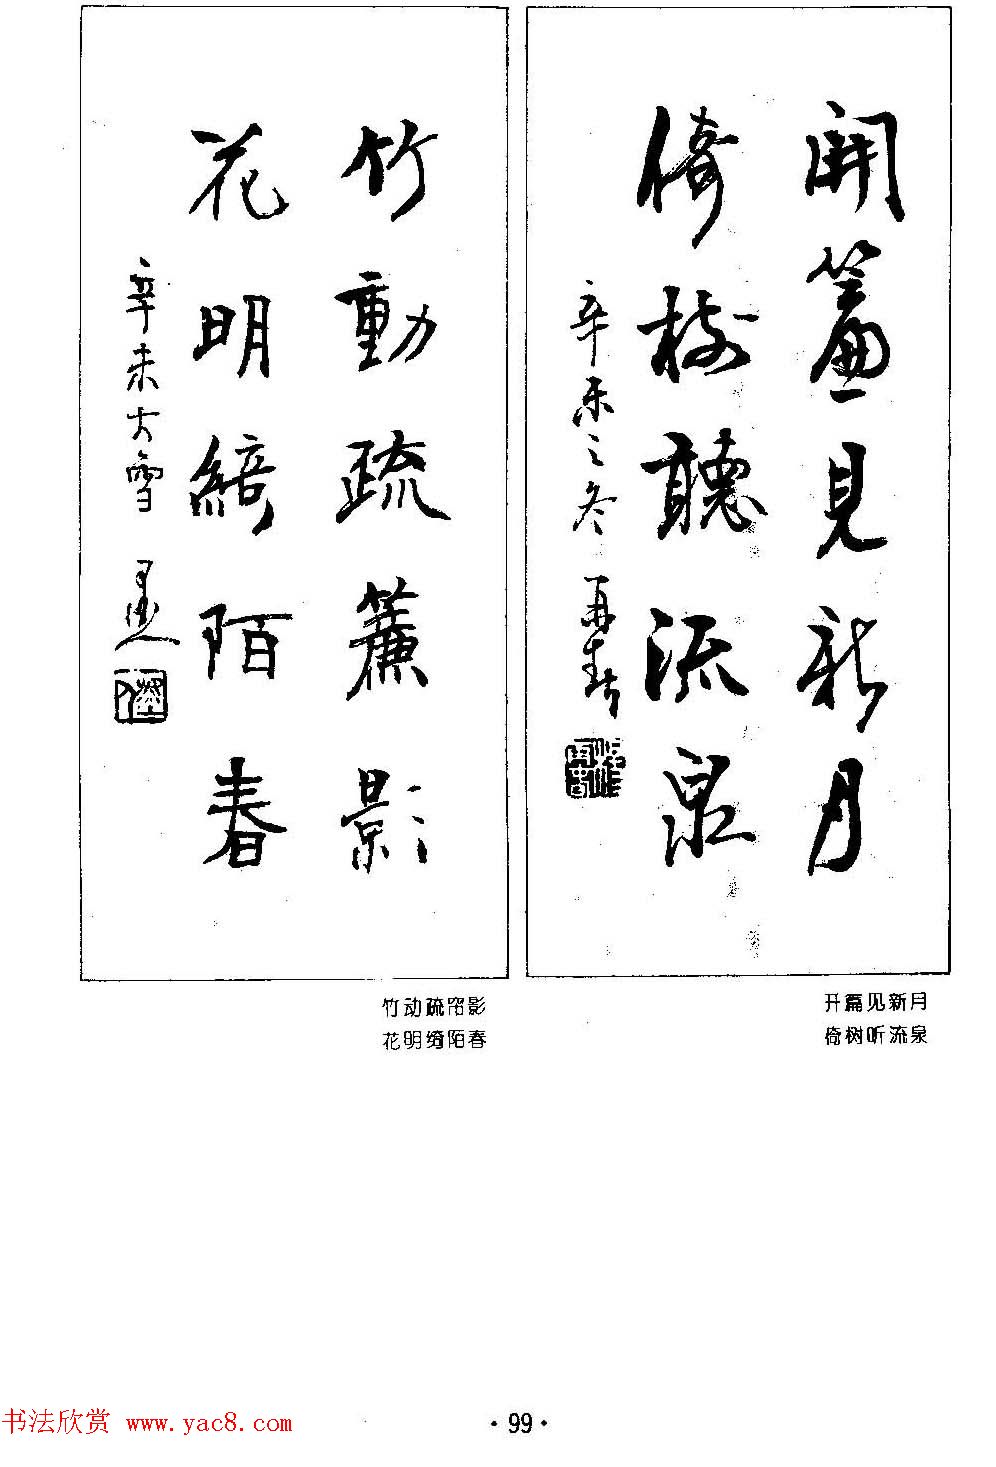 開簾見新月
倚樹聽流泉
辛未之冬
竹動疏簾影
花明綺陌春
辛未大雪
开篇见新月
倚树听流泉
竹动疏帘影
花明绮陌春
·99·
书法欣赏 www.yac8.com